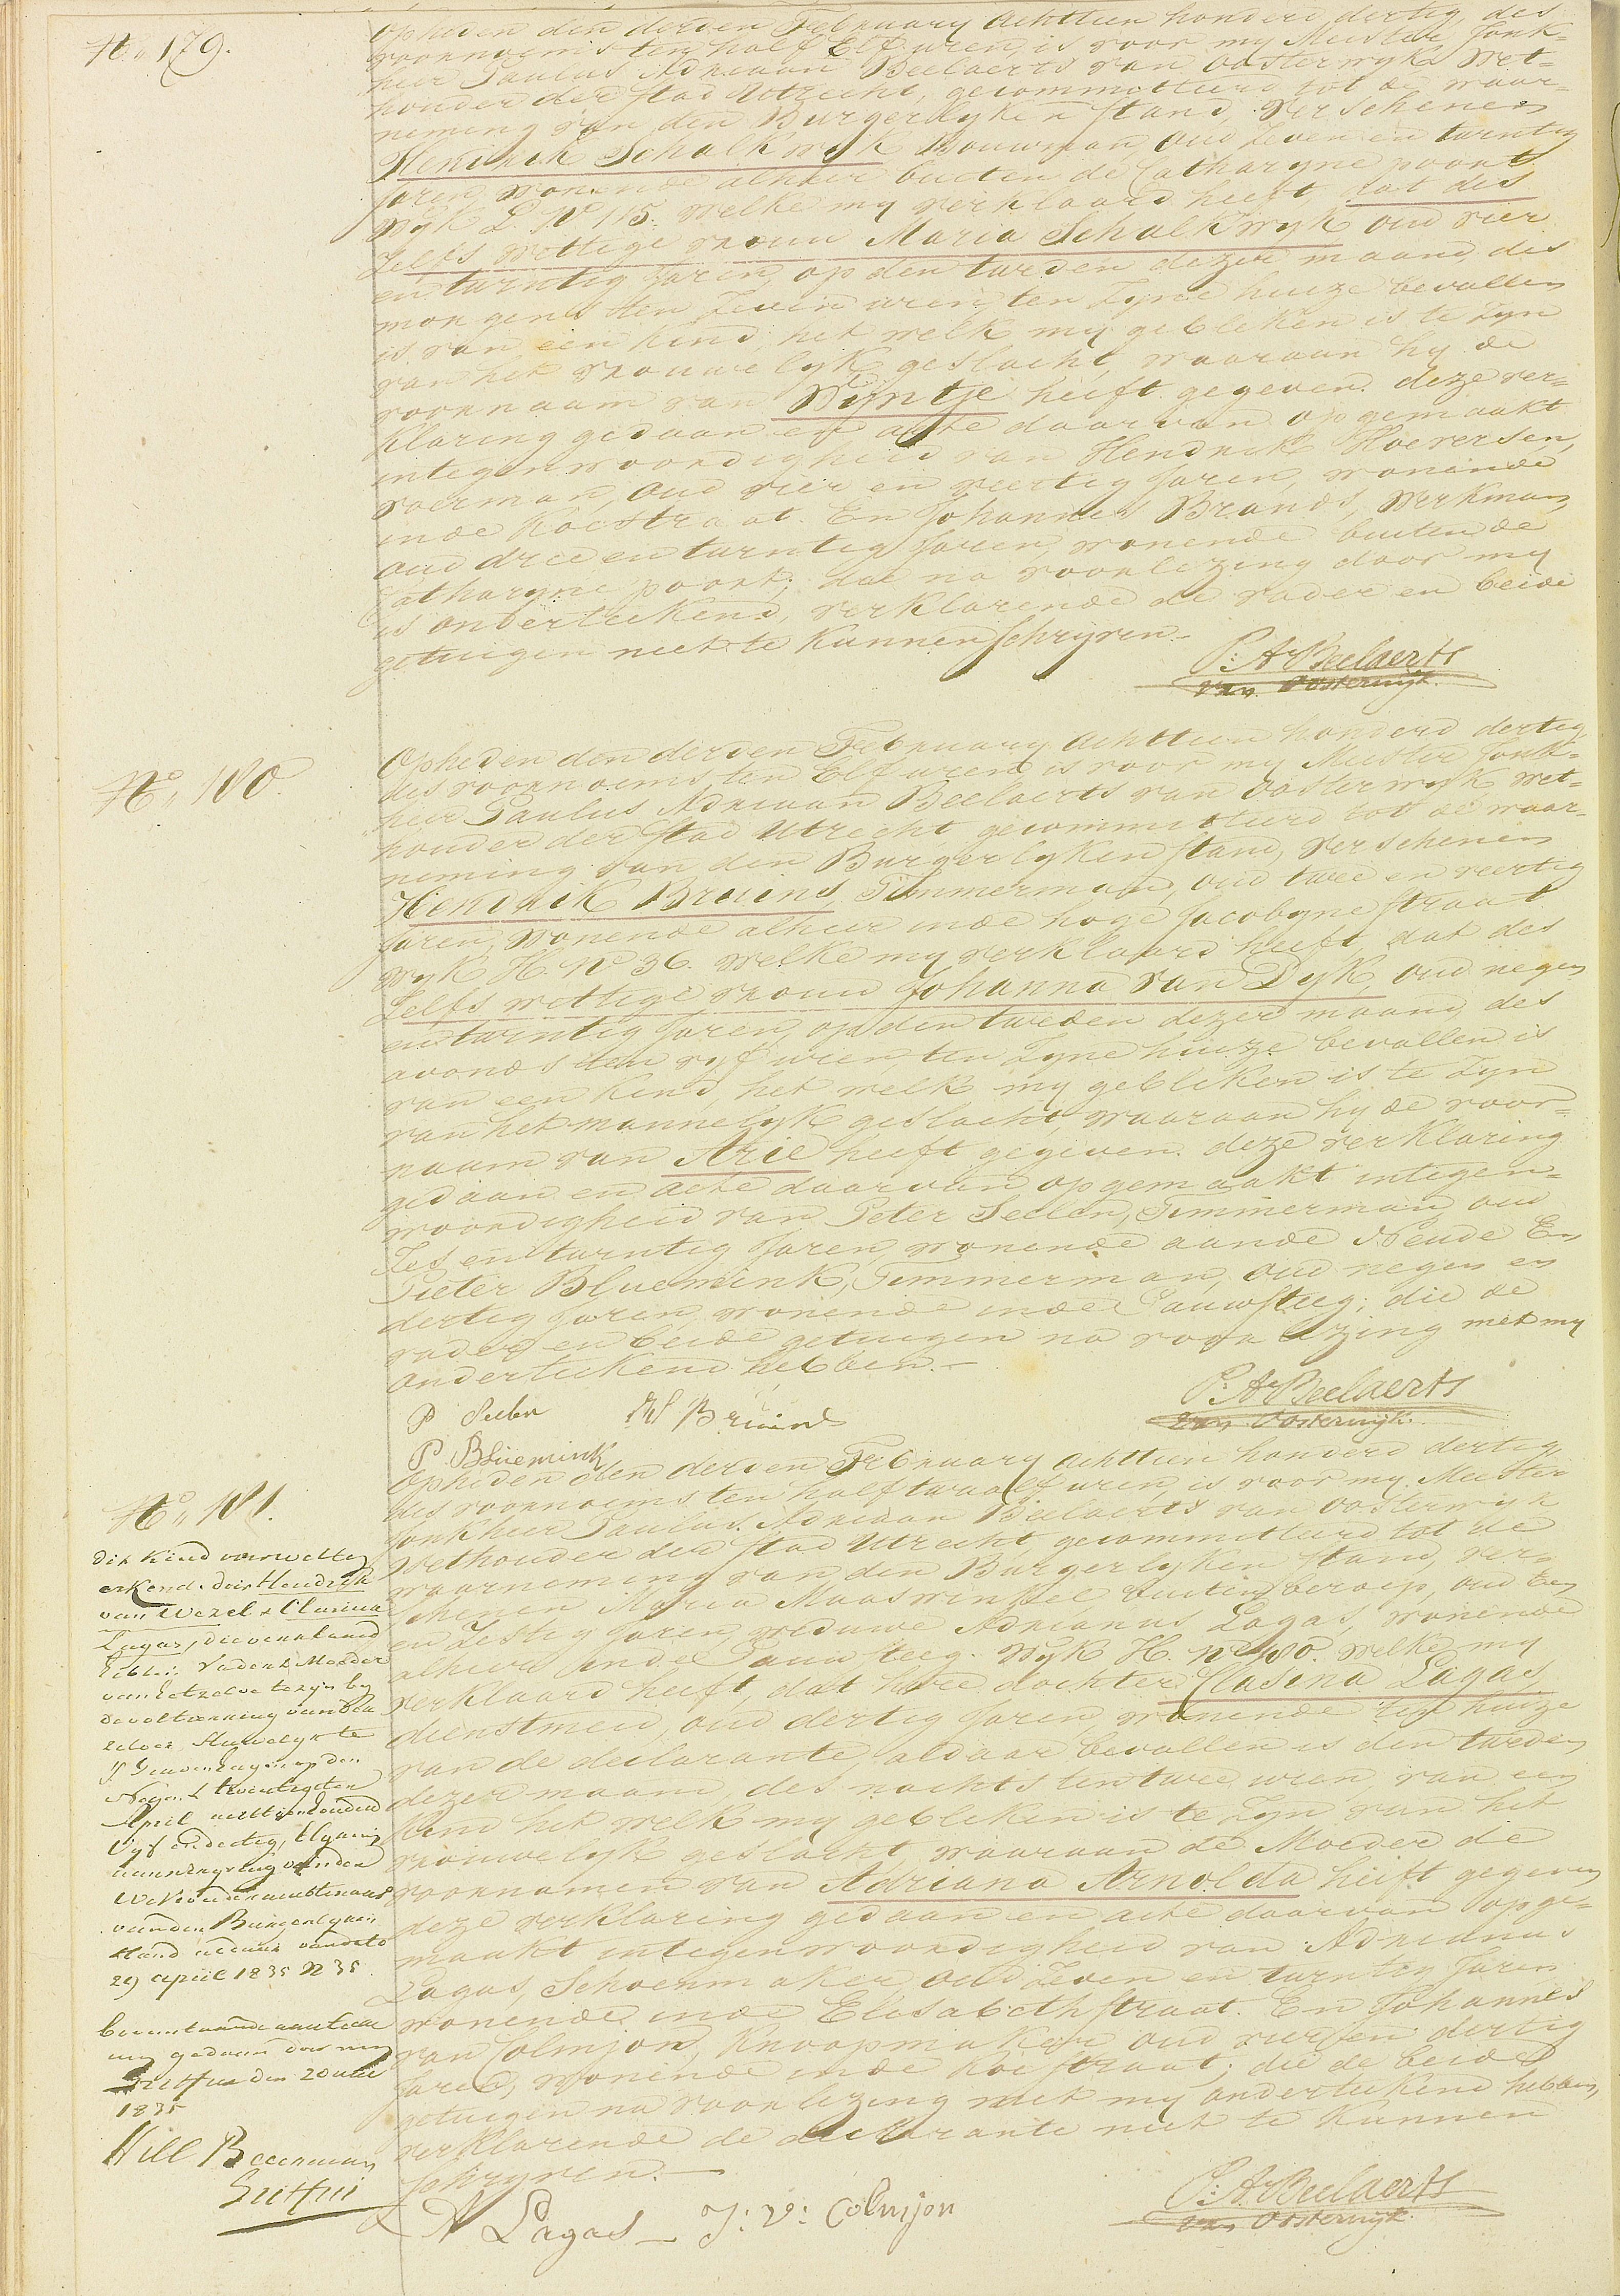 No. 179.
Op heden den derden February Achttien honderd dertig, des
voornoens ten half Elf uren, is voor my Meester Jonk=
heer Paulus Adriaan Beelaerts van Oosterwyk Wet=
houder der stad Utrecht, gecommitteerd tot de waar=
neming van den Burgerlyken stand, Verschenen
Hendrik Schalkwyk Bouwman, Oud Zeven en twintig
Jaren, wonende alhier buiten de Catharyne poort
Wyk L. No 115. welke my verklaard heeft, dat des
Zelfs wettige vrouw Maria Schalkwyk oud vier
en twintig Jaren, op den tweden dezer maand des
morgens ten Zeven uren, ten Zyne huize bevallen
is van een kind, het welk my gebleken is te Zyn
van het vrouwelyk geslacht, waaraan hy de
voornaam van Wyntje heeft gegeven. deze ver=
klaring gedaan en acte daarvan opgemaakt
in tegenwoordigheid van Hendrik Hoeversen,
voerman, Oud vier en veertig Jaren, wonende
in de Koestraat. En Johannes Brands, Werkman
Oud drie en twintig Jaren, wonende buiten de
Catharyne poort; die na voorlezing door my
is onderteekend, verklarende de vader en beide
getuigen niet te kunnen Schryven.-
P: A Beelaerts
van Oosterwijk.
No. 180.
Op heden den derden February Achttien honderd dertig,
des voornoens ten Elf uren, is voor my Meester Jonk=
heer Paulus Adriaan Beelaerts van Oosterwyk Wet=
houder der stad Utrecht, gecommitteerd tot de waar=
neming van den Burgerlyken stand, Verschenen
Hendrik Bruins, Timmerman, oud twee en veertig
Jaren, wonende alhier in de hoge Jacobyne straat
Wyk H. No 36. welke my verklaard heeft, dat des
Zelfs wettige vrouw Johanna van Dyk, oud negen
en twintig Jaren, op den tweden dezer maand des
avonds ten vyf uren, ten Zyne huize bevallen is
van een kind, het welk my gebleken is te Zyn
van het mannelyk geslacht, waaraan hy de voor=
naam van Arie heeft gegeven. deze verklaring
gedaan en acte daarvan opgemaakt in tegen=
woordigheid van Peter Seelen, Timmerman, oud
Zes en twintig Jaren, wonende aan de Neude En
Pieter Bluemink, Timmerman, oud negen en
dertig Jaren, wonende in de Pauwsteeg; die de
vader en beide getuigen na voorlezing met my
onderteekend hebben.-
P Seelen H Bruins
P Bluemink
P: A Beelaerts
van Oosterwijk.
No. 181.
Op heden den derden February Achttien honderd dertig,
des voornoens ten half twaalf uren, is voor my Meester
Jonkheer Paulus Adriaan Beelaerts van Oosterwyk
Wethouder der stad Utrecht, gecommitteerd tot de
waarneming van den Burgerlyken stand, ver=
schenen Maria Maaswinkel buiten beroep, oud een
en Zestig Jaren, weduwe Adrianus Lagas, wonende
alhier in de Pauwsteeg. Wyk H. No 480. welke my
verklaard heeft, dat hare dochter Clasina Lagas,
dienstmeid, oud dertig Jaren, wonende ten huize
van de declarante, aldaar bevallen is den tweden
dezer maand, des nachts ten twee uren, van een
kind het welk my gebleken is te Zyn van het
vrouwelyk geslacht, waaraan de Moeder de
voornamen van Adriana Arnolda heeft gegeven
deze verklaring gedaan en acte daarvan opge=
maakt in tegenwoordigheid van Adrianus
Lagas, Schoenmaker, Oud Zeven en twintig Jaren
wonende in de Elisabethstraat. En Johannes
van Colmjon, Knoopmaker oud vier en dertig
Jaren, wonende in de Koestraat; die de beide
getuigen na voorlezing met my onderteekend hebben,
verklarende de declarante niet te kunnen
schryven.-
A Lagas J: V: Colmjon
P: A Beelaerts
van Oosterwijk.
Dit kind voor wettig
erkend door Hendrik
van Wezel & Clasina
Lagas, die verklaard
hebben Vader & Moeder
van hetzelve te zijn by
de voltrekking van der
zelver Huwelyk te
s' Gravenhage op den
Negen & twintigsten
April achttienhonderd
Vyf en dertig, blykens
van den
van den Burgerlyken
stand aldaar van dato
29 April 1835 N 35.
gedaan door my
den 20
1835
Will Beerman